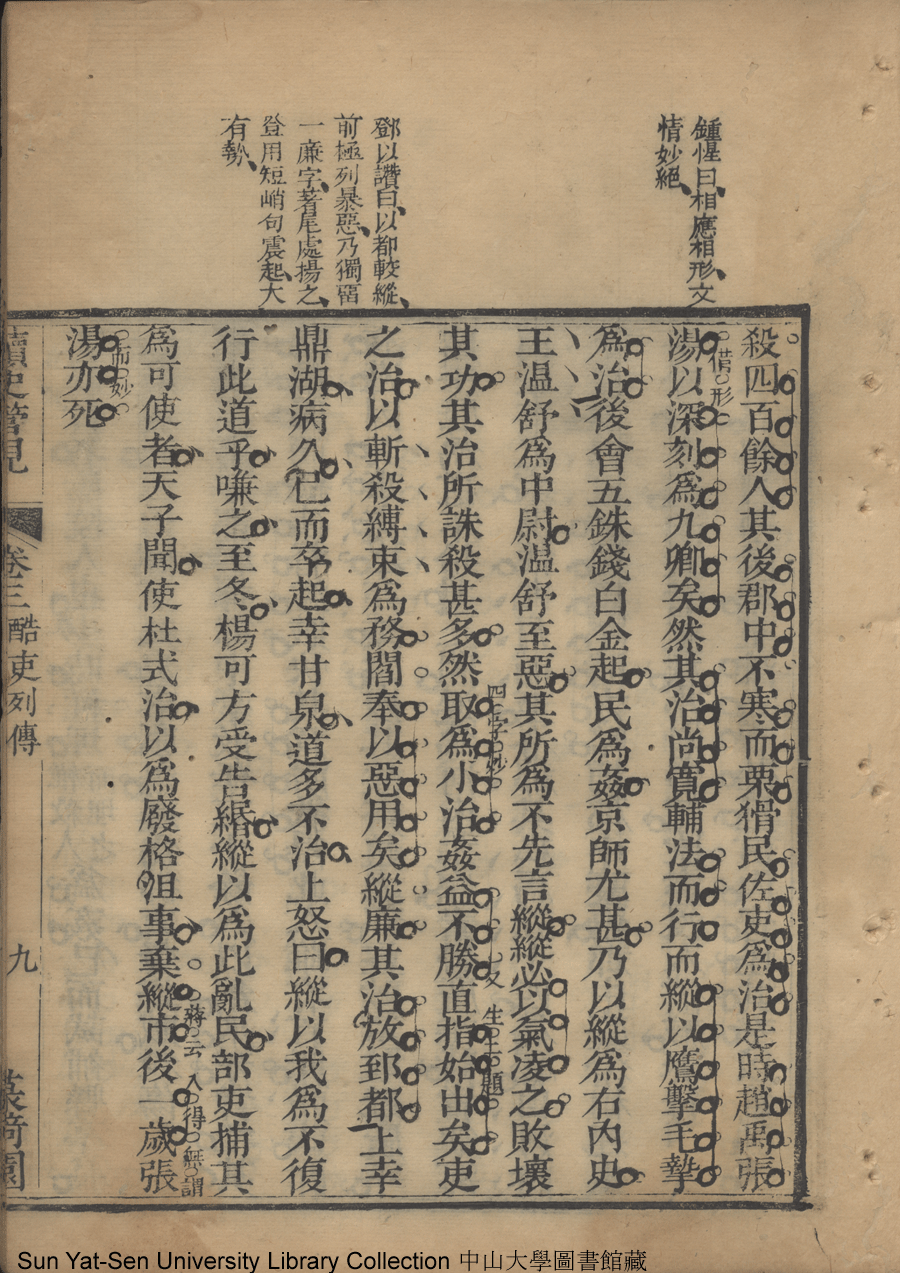 鍾惺曰相應相形文
情妙絕
鄧以讚曰以都較縱
前極列暴惡乃獨畱
一廉字著尾處揚之
登用短峭句震起大
有勢
殺四百餘人其後郡中不寒而栗猾民佐吏爲治是時趙禹張
湯以深刻爲九卿矣然其治尚寬輔法而行而縱以鷹擊毛摯
借形
爲治後會五銖錢白金起民爲姦京師尤甚乃以縱爲右內史
王温舒爲中尉温舒至惡其所爲不先言縱縱必以氣凌之敗壞
其功其治所誅殺甚多然取爲小治姦益不勝直指始出矣吏
四字妙
又生一題
之治以斬殺縛束爲務閻奉以惡用矣縱廉其治放郅都上幸
鼎湖病久巳而卒起幸甘泉道多不治上怒曰縱以我爲不復
行此道乎嗛之至冬楊可方受告緡縱以爲此亂民部吏捕其
爲可使者天子聞使杜式治以爲廢格沮事棄縱市後一歲張
蔣云入得無謂
湯亦死
而妙
讀史管見
卷三酷吏列傳
九
Sun Yat-Sen University Library Collection 中山大學圖書館藏